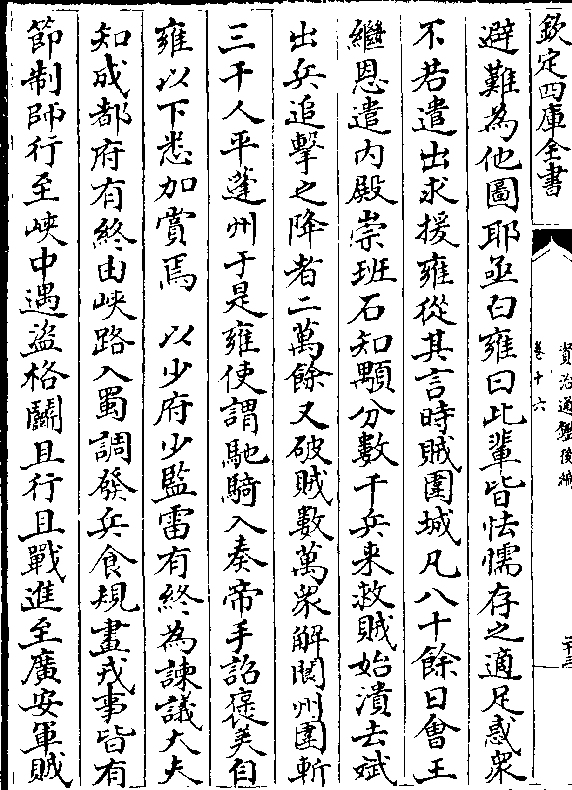 欽定四庫全書
資治通鑑後編
卷十六
避難為他圖耶亟白雍曰此輩皆怯懦存之適足惑衆
不若遣出求援雍從其言時賊圍城凡八十餘日會王
繼恩遣内殿崇班石知顒分數千兵来救賊始潰去斌
出兵追擊之降者二萬餘又破賊數萬衆解閬州圍斬
三千人平蓬州于是雍使謂馳騎入奏帝手詔褒美自
雍以下悉加賞焉　以少府少監雷有終為諫議大夫
知成都府有終由峽路入蜀調發兵食規畫戎事皆有
節制師行至峽中遇盜格鬭且行且戰進至廣安軍賊